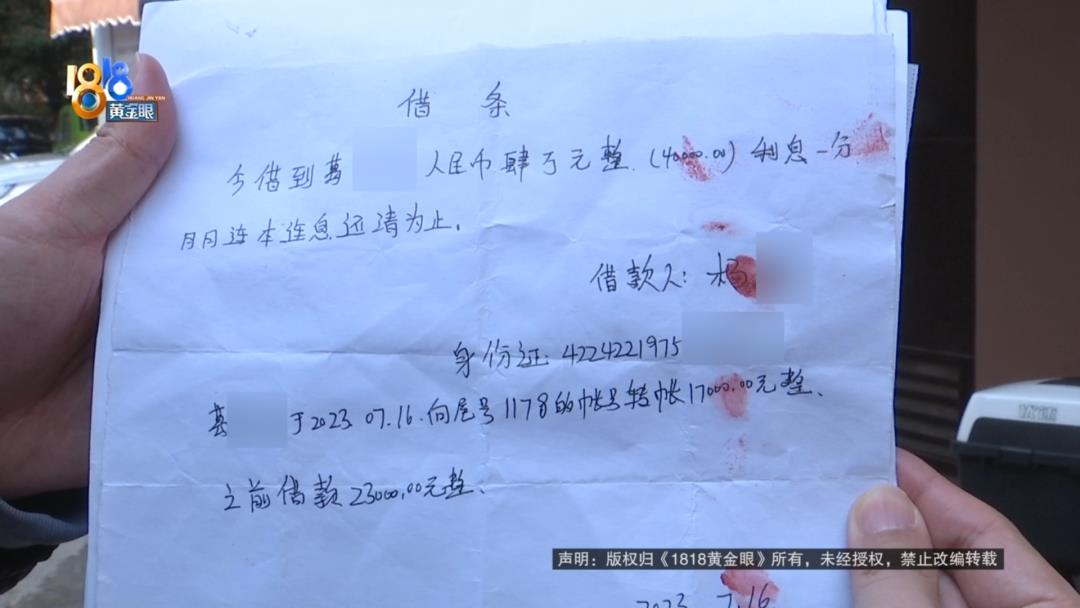 1818
HUANG JIN YAN
黄金眼
借 条
今借到葛 人民币肆万元整.(40000.00)利息一分
月月连本连息还清为止.
借款人: 杨
身份证: 4224221975
葛 于2023 07.16.向尾号1178的帐号转帐17000.00元整.
之前借款23000.00元整.
声明：版权归《1818黄金眼》所有，未经授权，禁止改编转载
2023 7.16